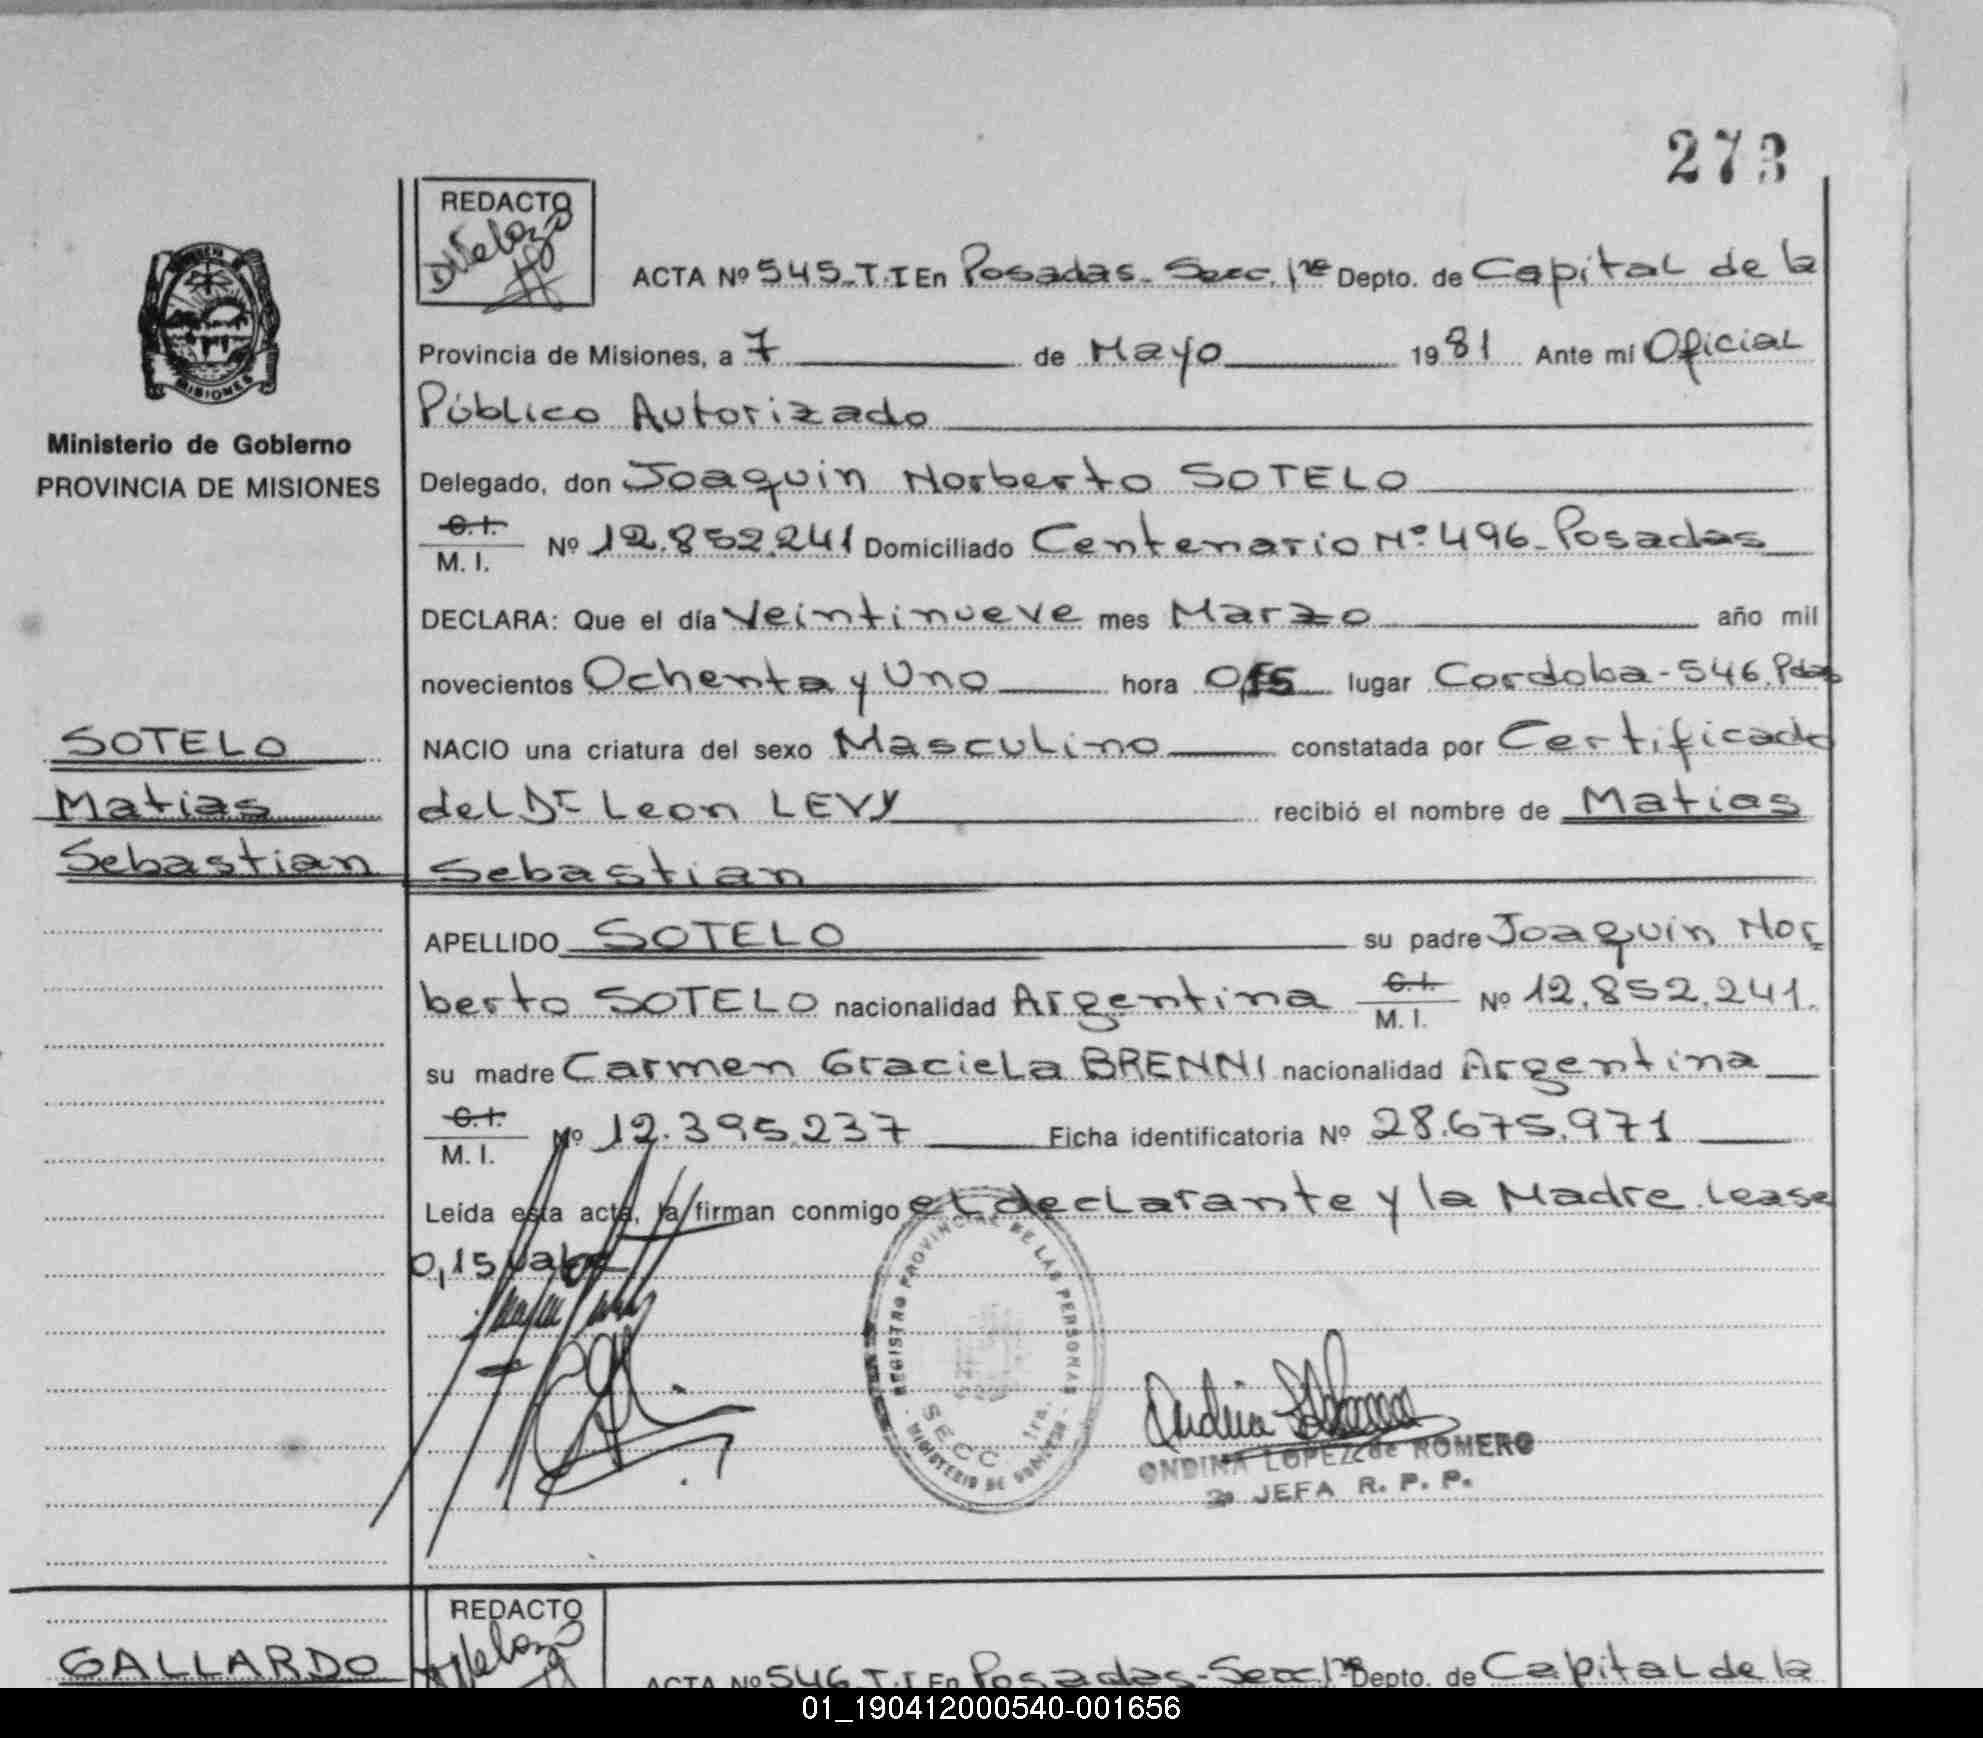 273
REDACTO
DVelozo
ACTA Nº 545-T.I En Posadas-Secc. 1ra Depto. de Capital de la
MISIONES
Provincia de Misiones, a 7 de Mayo 1981 Ante mí Oficial
Público Autorizado
Ministerio de Gobierno
PROVINCIA DE MISIONES
Delegado, don Joaquin Norberto SOTELO
C.I.
M. I. Nº 12.852.241 Domiciliado Centenario Nº 496-Posadas
DECLARA: Que el día Veintinueve mes Marzo año mil
novecientos Ochenta y Uno hora 0,15 lugar Cordoba-546.Pdas
SOTELO
Matias
Sebastian
NACIO una criatura del sexo Masculino constatada por Certificado
del Dr Leon LEVY recibió el nombre de Matias
Sebastian
APELLIDO SOTELO su padre Joaquin Nor
berto SOTELO nacionalidad Argentina C.I. M. I. Nº 12.852.241.
su madre Carmen Graciela BRENNI nacionalidad Argentina
C.I.
M. I. Nº 12.395.237 Ficha identificatoria Nº 28.675.971
Leída esta acta, la firman conmigo el declarante y la Madre. Lease
0,15 Vale
REGISTRO PROVINCIAL DE LAS PERSONAS
SECC. 1ra.
MINISTERIO DE GOBIERNO
ONDINA LOPEZ de ROMERO
2a JEFA R. P. P.
REDACTO
DVelozo
GALLARDO
ACTA Nº 546-T.I En Posadas-Secc 1ra Depto. de Capital de la
01_190412000540-001656